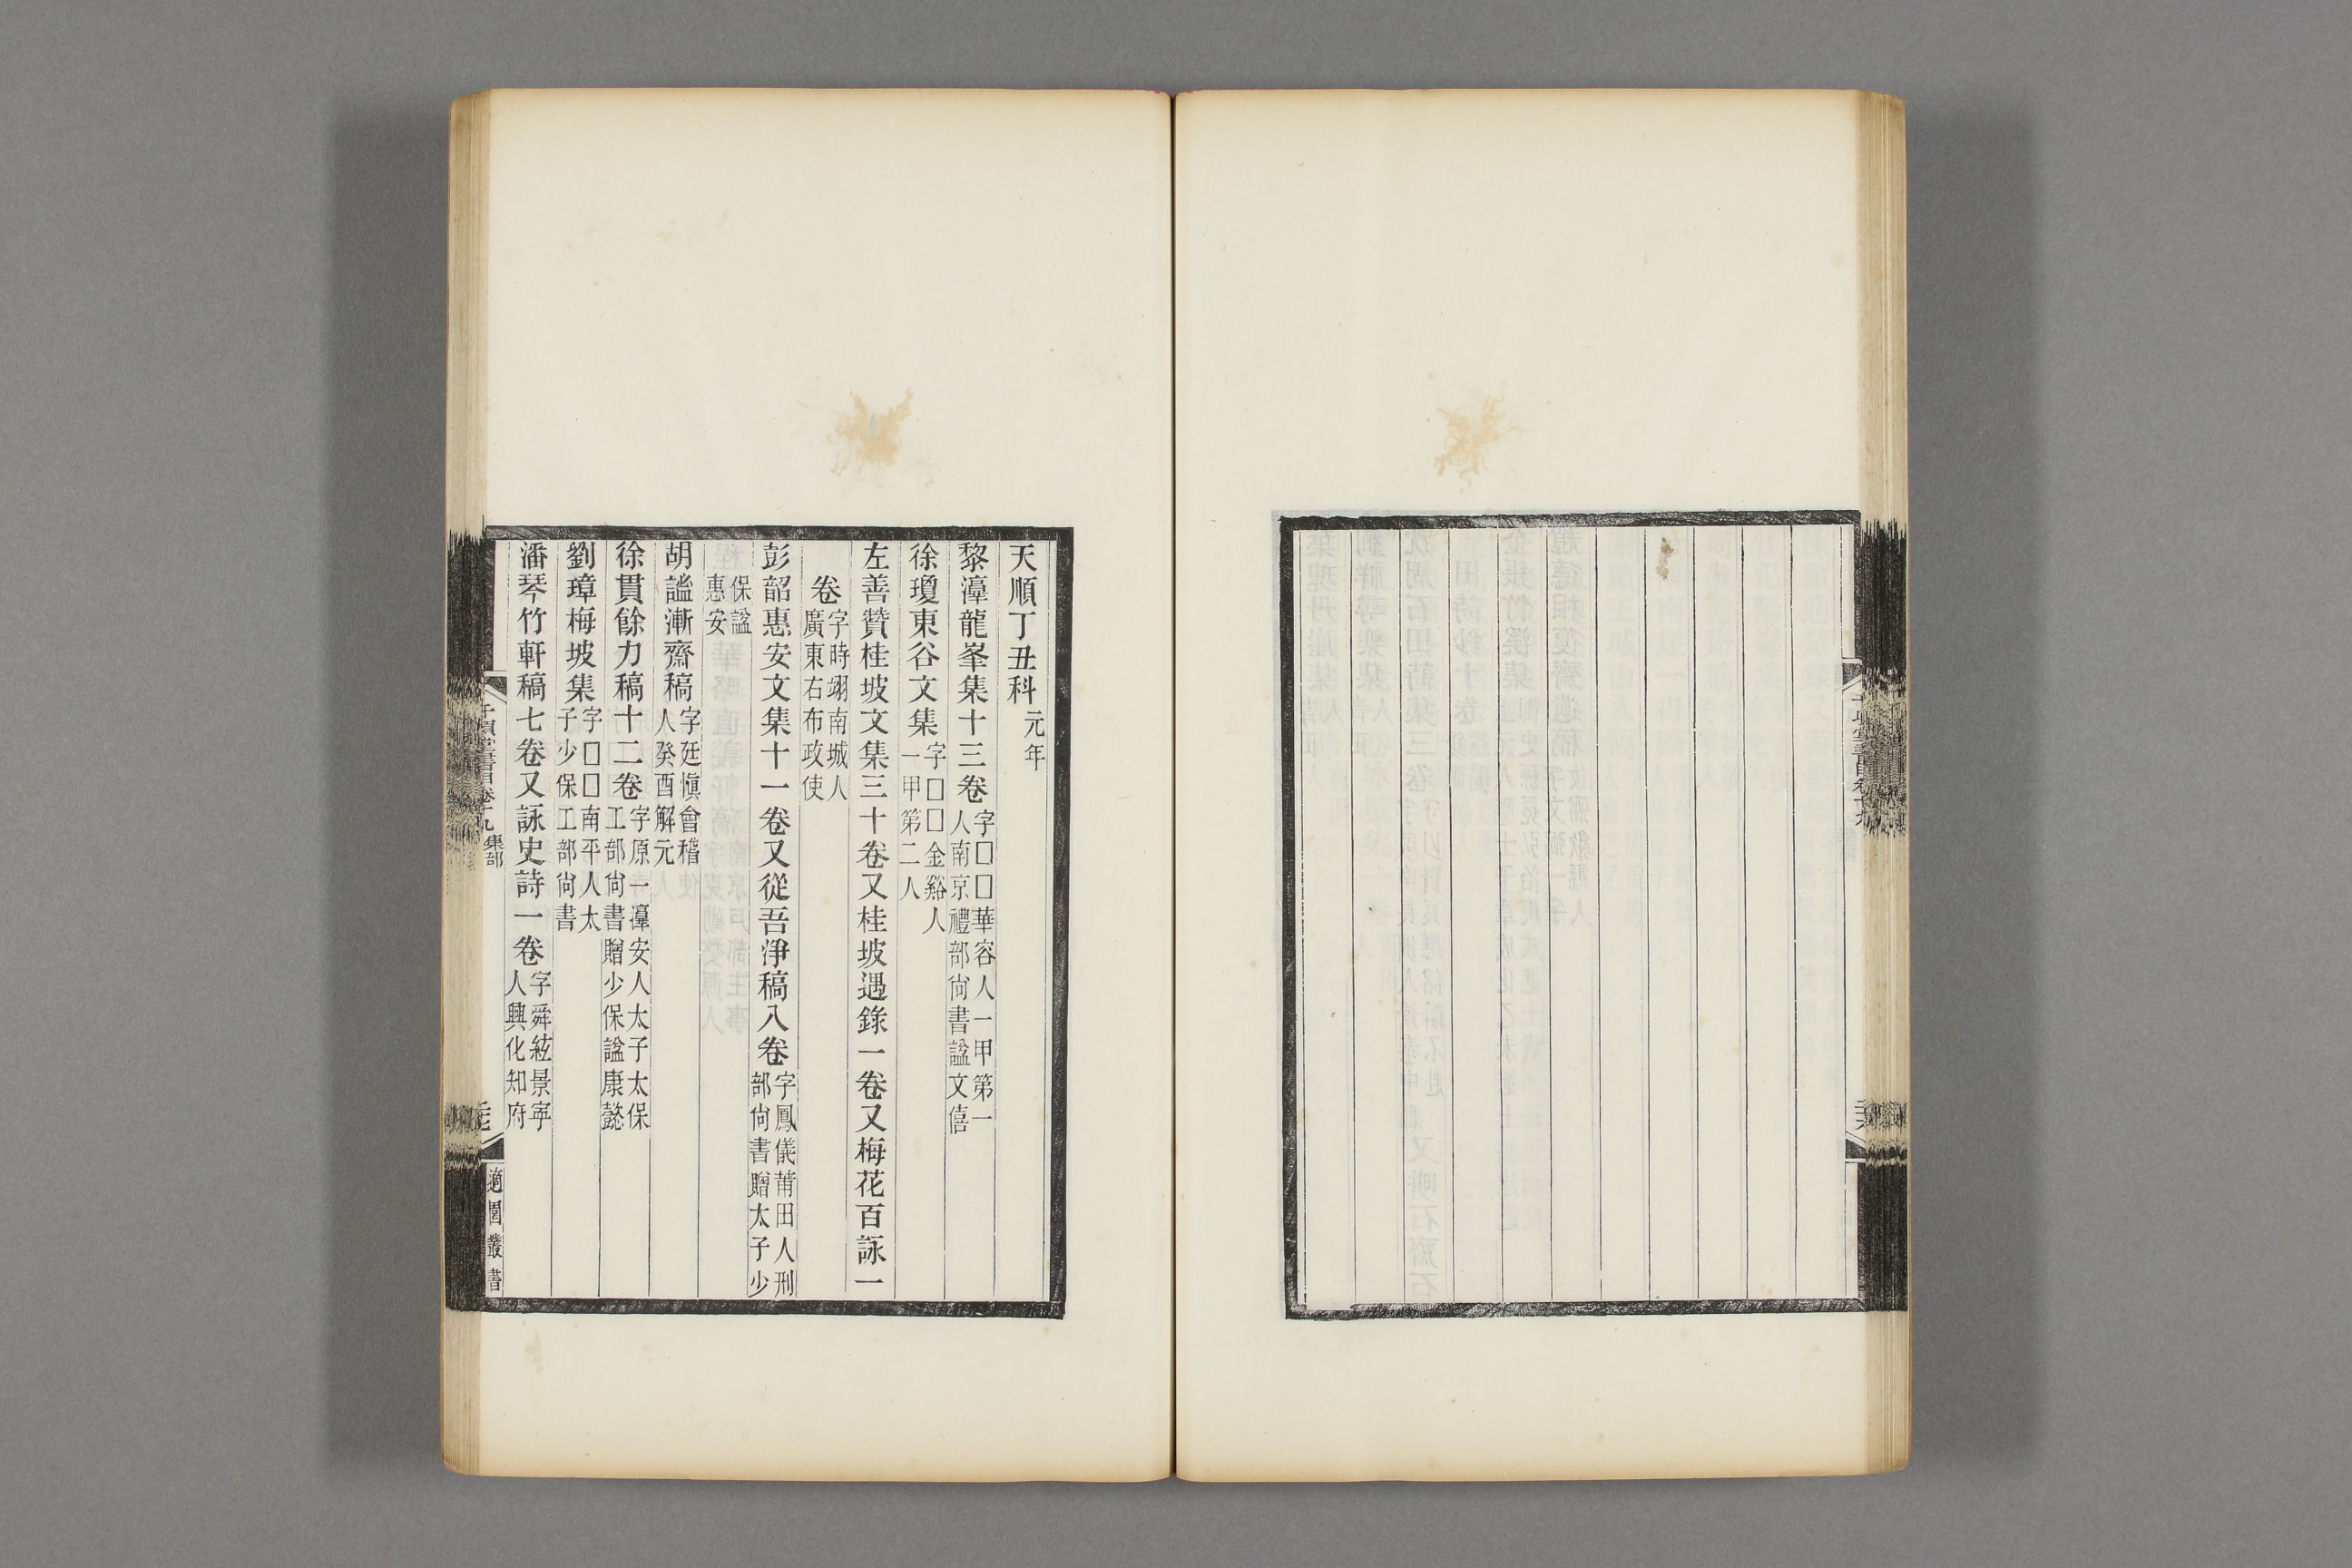 天順丁丑科元年
黎淳龍峯集十三卷字□□華容人一甲第一人南京禮部尙書諡文僖
徐瓊東谷文集字□□金谿人一甲第二人
左善贊桂坡文集三十卷又桂坡遇錄一卷又梅花百詠一
卷字時翊南城人廣東右布政使
彭韶惠安文集十一卷又從吾淨稿八卷字鳳儀莆田人刑部尙書贈太子少
保諡惠安
胡謐漸齋稿字廷愼會稽人癸酉解元
徐貫餘力稿十二卷字原一淳安人太子太保工部尙書贈少保諡康懿
劉璋梅坡集字□□南平人太子少保工部尙書
潘琴竹軒稿七卷又詠史詩一卷字舜絃景寧人興化知府
千頃堂書目卷十九 集部
適園叢書